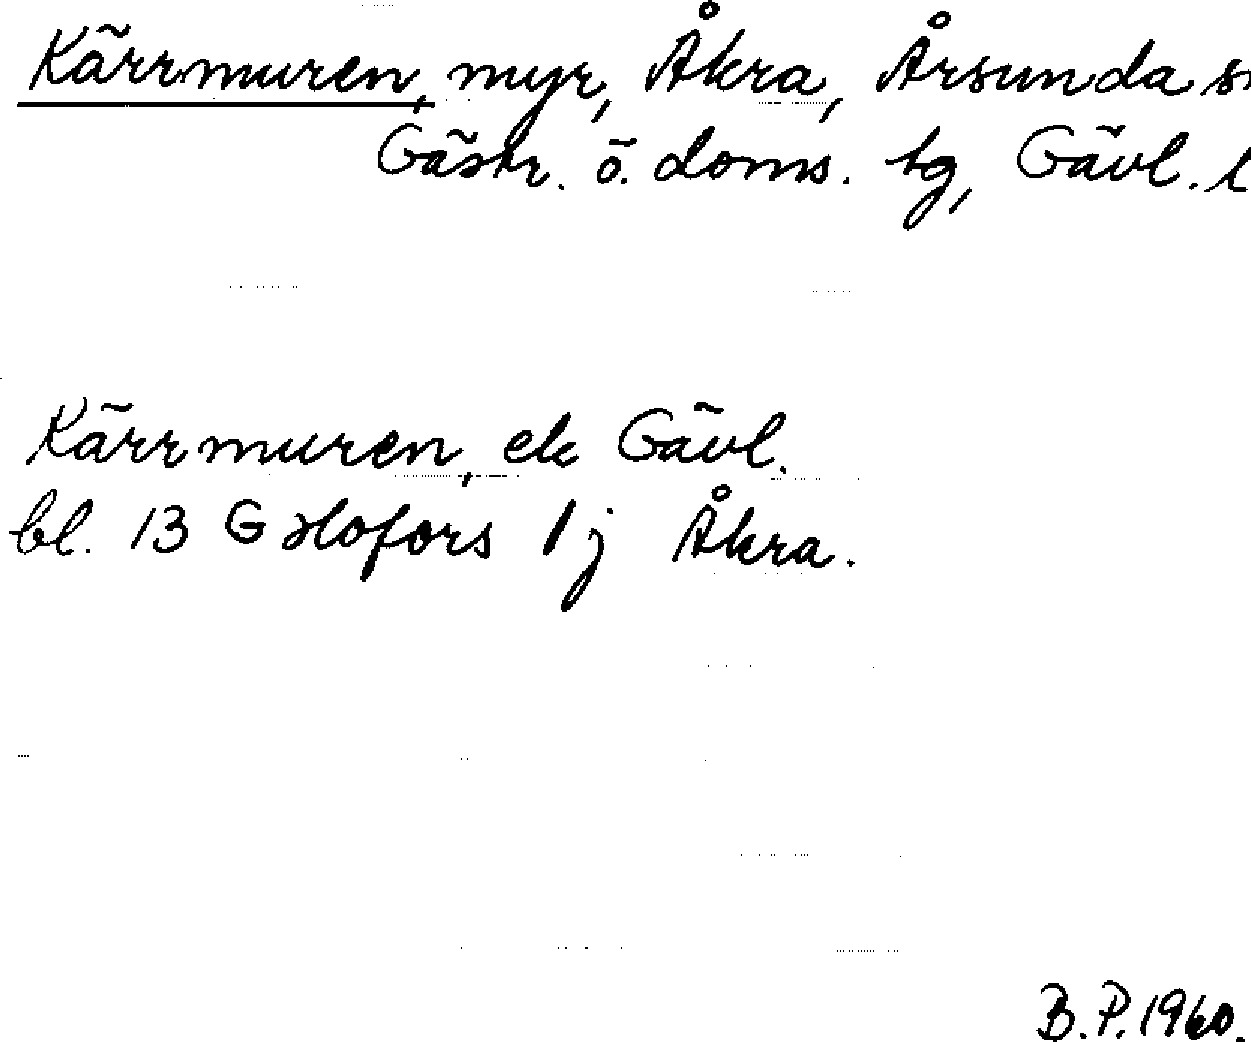 Kärrmuren, myr, Åkra, Årsunda sn
Gästr. ö. doms. tg, Gävl. l
Kärrmuren, ek Gävl.
bl. 13 G Hofors 1j Åkra.
B.P. 1960.